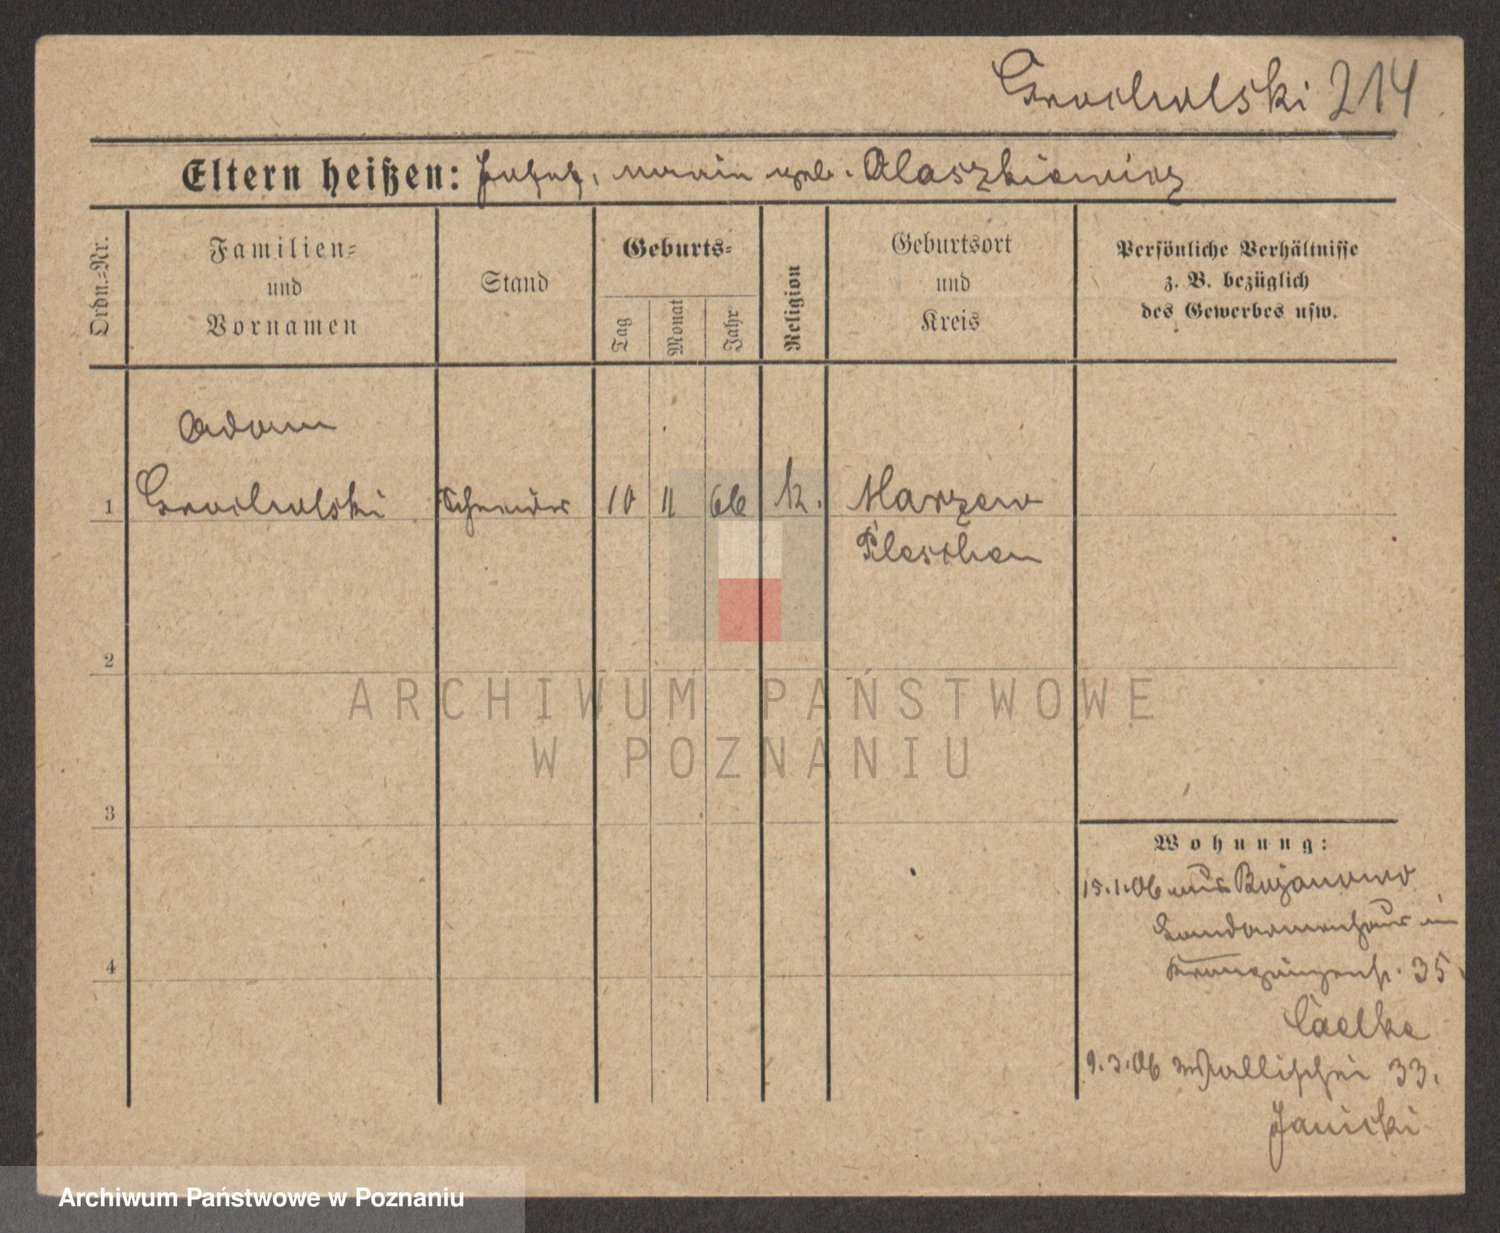 Grocholski 214
Eltern heißen: Josef, Marie geb. Olaszkiewicz
Ordn.-Nr.
Familien-
und
Vornamen
Stand
Geburts-
Tag
Monat
Jahr
Religion
Geburtsort
und
Kreis
Persönliche Verhältnisse
z. B. bezüglich
des Gewerbes usw.
Adam
1 Grocholski Schneider 10 11 66 k. Marzew
Pleschen
2
ARCHIWUM PAŃSTWOWE
W POZNANIU
3
Wohnung:
15.1.06 aus Bojanowo
in
Kronprinzenstr. 35
9.3.06 Wallischei 33.
4
Janicki
Archiwum Państwowe w Poznaniu